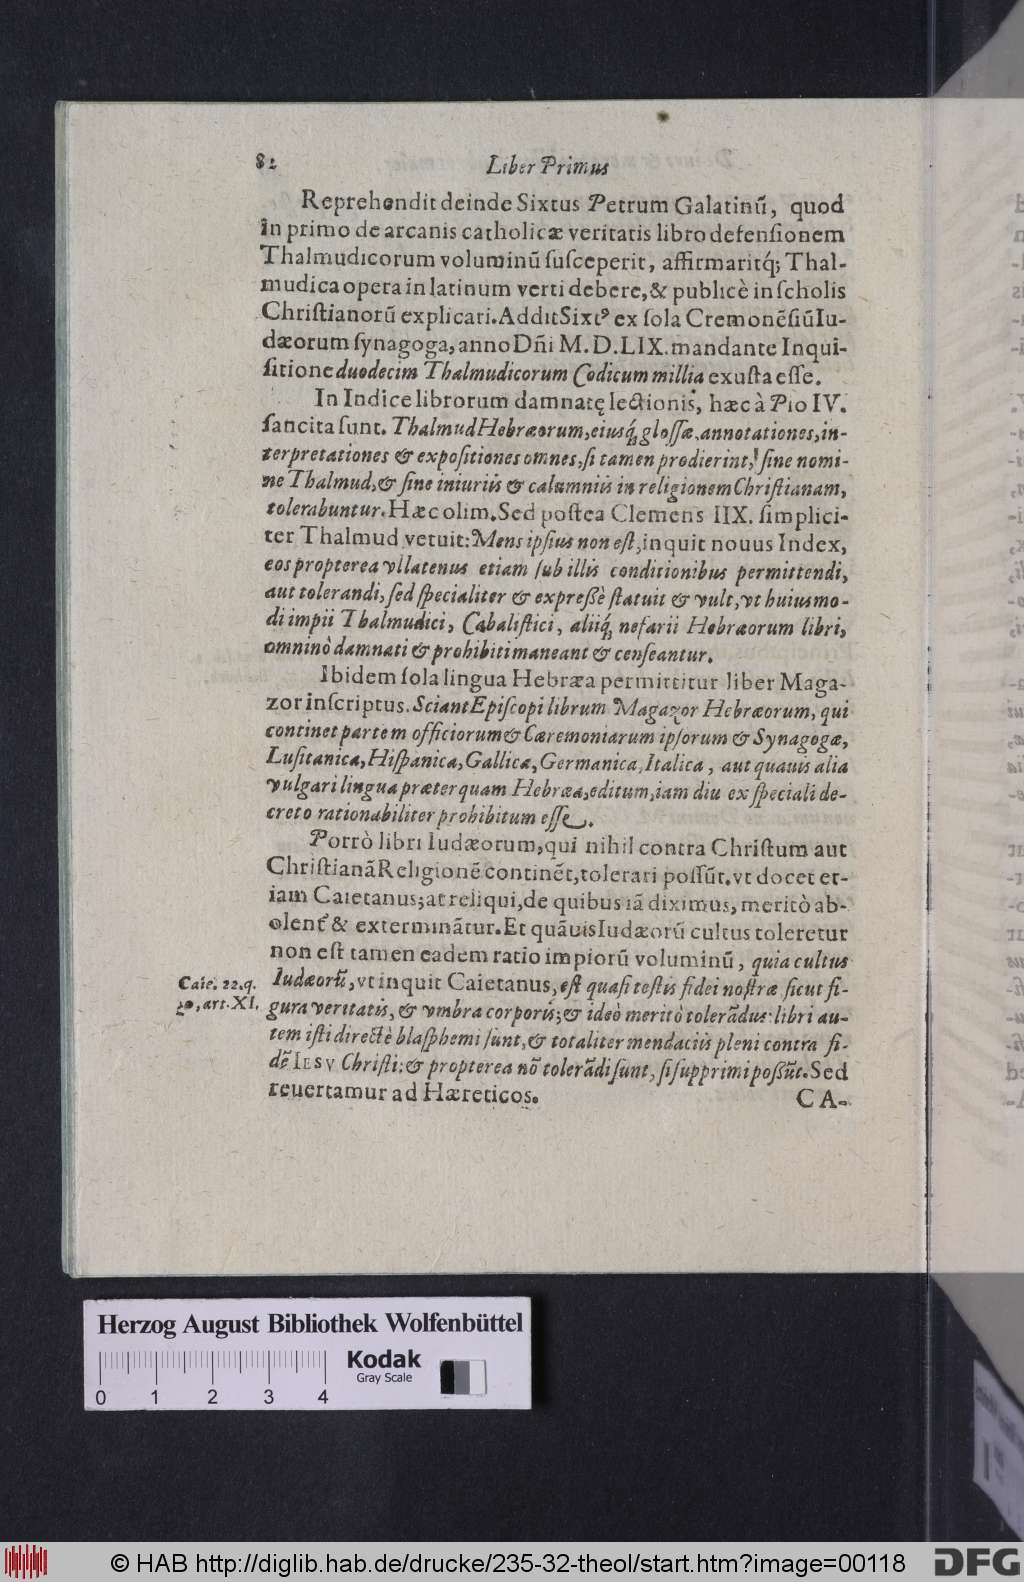 82 Liber Primus
Reprehendit deinde Sixtus Petrum Galatinũ, quod
in primo de arcanis catholicæ veritatis libro defensionem
Thalmudicorum voluminũ susceperit, affirmaritq́; Thal-
mudica opera in latinum verti debere, & publicè in scholis
Christianorũ explicari. Addit Sixtꝰ ex sola Cremonẽsiũ Iu-
dæorum synagoga, anno Dñi M.D.LIX. mandante Inqui-
sitione duodecim Thalmudicorum Codicum millia exusta esse.
In Indice librorum damnatę lectionis, hæc à Pio IV.
sancita sunt. Thalmud Hebræorum, eiusq́; glossæ, annotationes, in-
terpretationes & expositiones omnes, si tamen prodierint, sine nomi-
ne Thalmud, & sine iniuriis & calumniis in religionem Christianam,
tolerabuntur. Hæc olim. Sed postea Clemens IIX. simplici-
ter Thalmud vetuit: Mens ipsius non est, inquit nouus Index,
eos propterea vllatenus etiam sub illis conditionibus permittendi,
aut tolerandi, sed specialiter & expreßè statuit & vult, vt huiusmo-
di impii Thalmudici, Cabalistici, aliiq́; nefarii Hebræorum libri,
omninò damnati & prohibiti maneant & censeantur.
Ibidem sola lingua Hebræa permittitur liber Maga-
zor inscriptus. Sciant Episcopi librum Magazor Hebræorum, qui
continet partem officiorum & Cæremoniarum ipsorum & Synagogæ,
Lusitanica, Hispanica, Gallica, Germanica, Italica, aut quauis alia
vulgari lingua præterquam Hebræa, editum, iam diu ex speciali de-
creto rationabiliter prohibitum esse.
Porrò libri Iudæorum, qui nihil contra Christum aut
Christianã Religionẽ continẽt, tolerari possũt, vt docet et-
iam Caietanus; at reliqui, de quibus iã diximus, meritò ab-
olent̃ & exterminãtur. Et quãuis Iudæorũ cultus toleretur
non est tamen eadem ratio impiorũ voluminũ, quia cultus
Caie. 22. q.
10, art. XI.
Iudæorũ, vt inquit Caietanus, est quasi testis fidei nostræ sicut fi-
gura veritatis, & vmbra corporis; & ideò meritò tolerãdus: libri au-
tem isti directè blasphemi sunt, & totaliter mendaciis pleni contra fi-
dẽ IESV Christi: & propterea nõ tolerãdi sunt, si supprimi poßũt. Sed
reuertamur ad Hæreticos.
CA-
Herzog August Bibliothek Wolfenbüttel
0 1 2 3 4
Kodak
Gray Scale
© HAB http://diglib.hab.de/drucke/235-32-theol/start.htm?image=00118
DFG